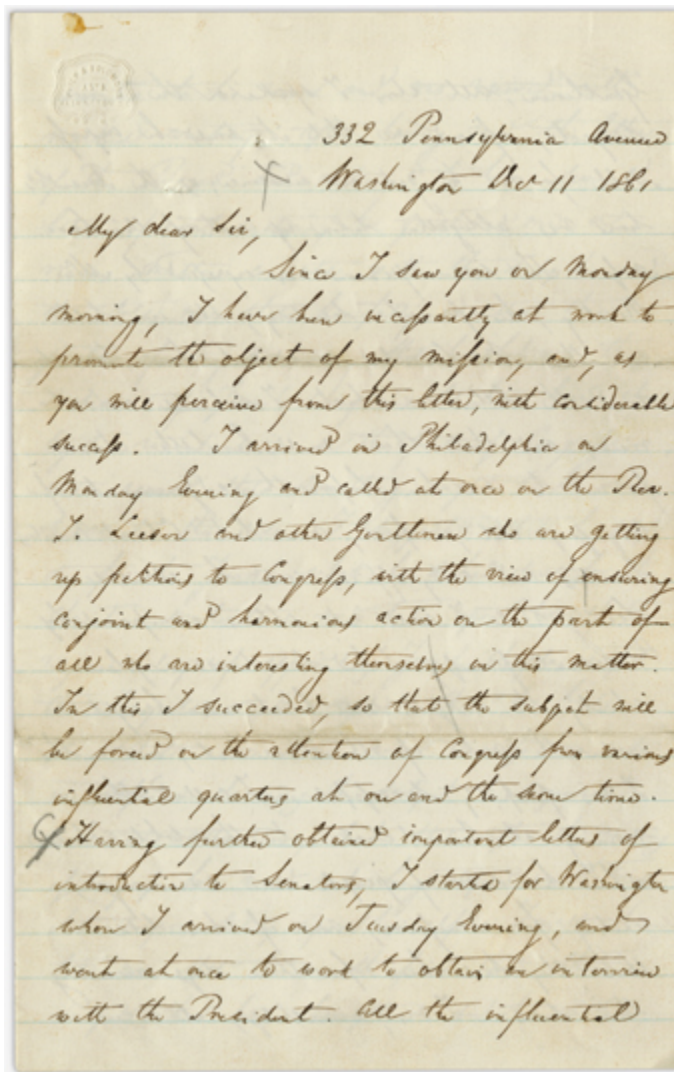 332 Pennsylvania Avenue
Washington Dec 11 1861
My dear Sir,
Since I saw you on Monday
morning, I have been incessantly at work to
promote the object of my mission, and, as
you will perceive from this letter, with considerable
success. I arrived in Philadelphia on
Monday Evening and called at once on the Rev.
I. Leeser and other Gentlemen who are getting
up petitions to Congress, with the view of ensuring
conjoint and harmonious action on the part of
all who are interesting themselves in this matter.
In this I succeeded, so that the subject will
be forced on the attention of Congress from various
influential quarters at one and the same time.
Having further obtained important letters of
introduction to Senators, I started for Washington
where I arrived on Tuesday Evening, and
went at once to work to obtain an interview
with the President. All the influential